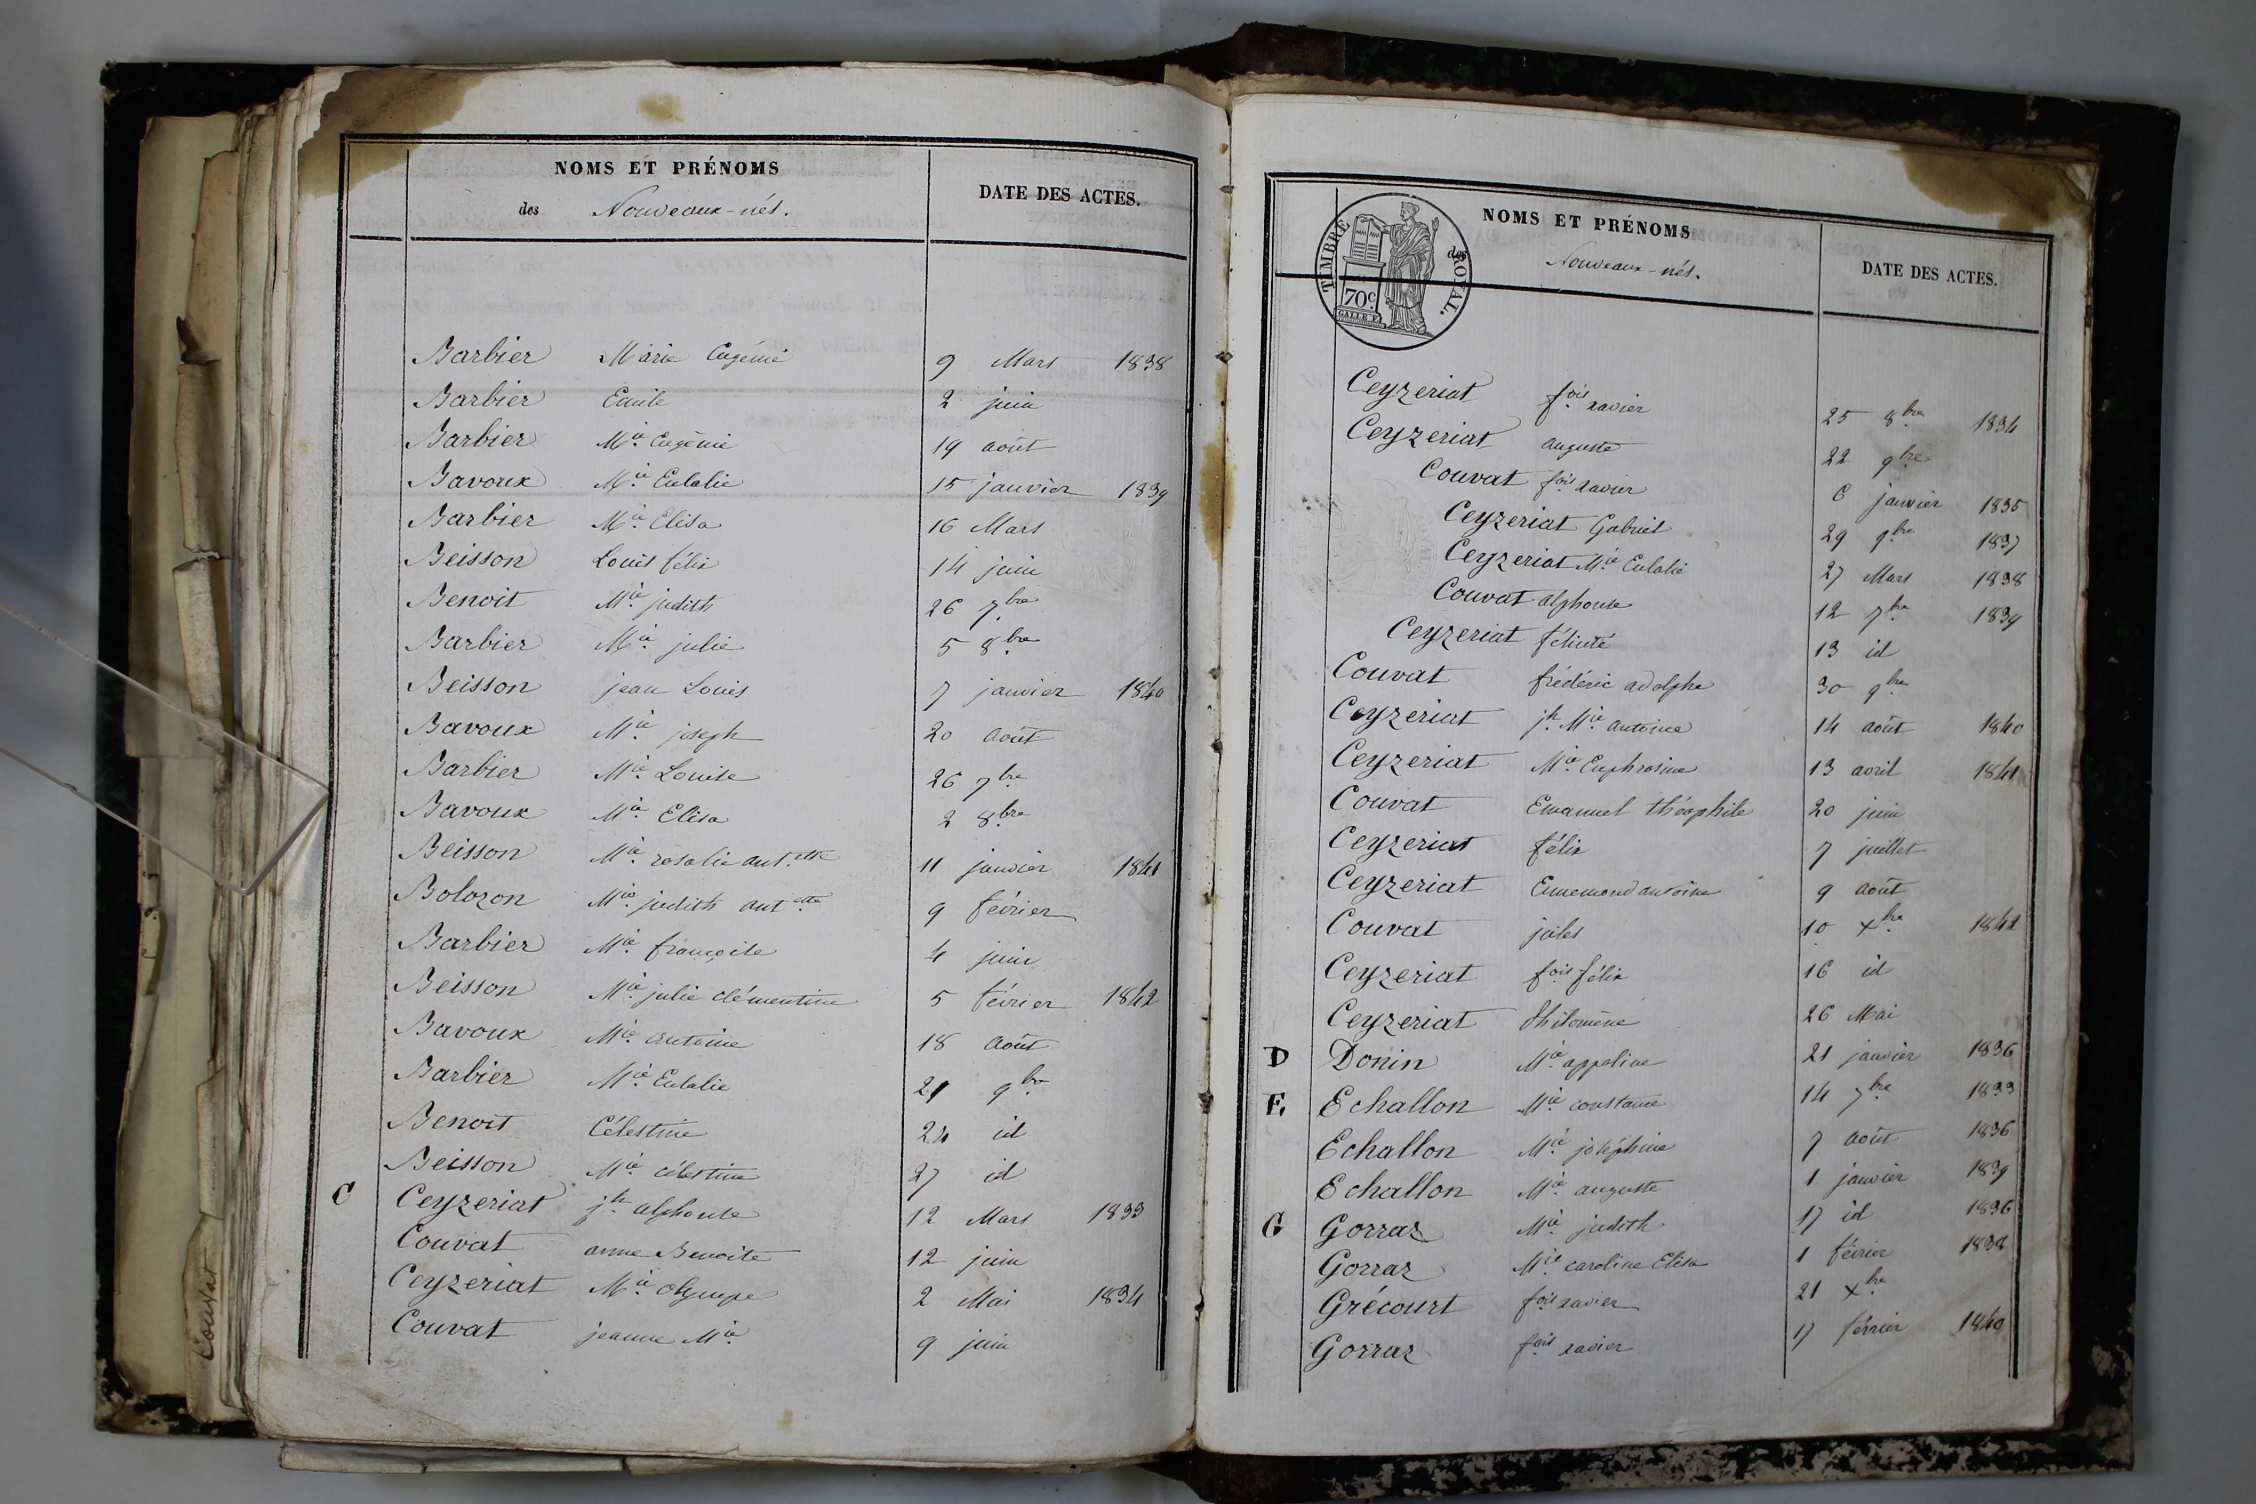 NOMS ET PRÉNOMS
des Nouveaux-nés.
DATE DES ACTES.
Barbier Marie Eugénie 9 Mars 1838
Barbier Emile 2 juin
Barbier Mie Eugénie 19 août
Bavoux Mie Eulalie 15 janvier 1839
Barbier Mie Elisa 16 Mars
Beisson Louis félix 14 juin
Benoit Mie judith 26 7bre
Barbier Mie julie 5 8bre
Beisson jean Louis 7 janvier 1840
Bavoux Mie joseph 20 août
Barbier Mie Louise 26 7bre
Bavoux Mie Elisa 2 8bre
Beisson Mie rosalie ant.ette 11 janvier 1841
Bolozon Mie judith ant.ette 9 février
Barbier Mie françoise 4 juin
Beisson Mie julie clémentine 5 février 1842
Bavoux Mie antoine 18 août
Barbier Mie Eulalie 21 9bre
Benoit Célestine 24 id
Beisson Mie célestine 27 id
C Ceyzeriat jh alphonse 12 Mars 1833
Couvat anne Benoite 12 juin
Ceyzeriat Mie olympe 2 Mai 1834
Couvat jeanne Mie 9 juin
Couvat
TIMBRE ROYAL.
70c.
GALLE F.
NOMS ET PRÉNOMS
des Nouveaux-nés.
DATE DES ACTES.
Ceyzeriat fois xavier 25 8bre 1834
Ceyzeriat auguste 22 9bre
Couvat fois xavier 6 janvier 1835
Ceyzeriat Gabriel 29 9bre 1837
Ceyzeriat Mie Eulalie 27 Mars 1838
Couvat alphonse 12 7bre 1839
Ceyzeriat félicité 13 id
Couvat frédéric adolphe 30 9bre
Ceyzeriat jh Mie antoine 14 août 1840
Ceyzeriat Mie Euphrosine 13 avril 1841
Couvat Emanuel théophile 20 juin
Ceyzeriat félix 7 juillet
Ceyzeriat Ennemond antoine 9 août
Couvat jules 10 xbre 1842
Ceyzeriat fois félix 16 id
Ceyzeriat Philomène 26 Mai
D Donin Mie appoline 21 janvier 1836
E Echallon Mie constance 14 7bre 1833
Echallon Mie joséphine 7 août 1836
Echallon Mie auguste 1 janvier 1839
G Gorraz Mie judith 17 id 1836
Gorraz Mie caroline Elisa 1 février 1838
Grécourt fois xavier 21 xbre
Gorraz fois xavier 17 février 1840